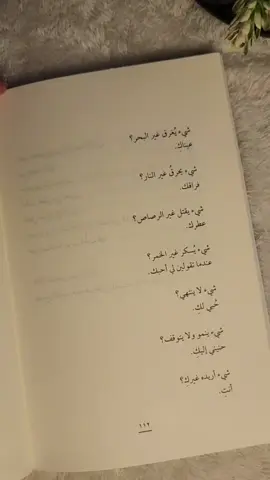 شيء يُغرق غير البحر؟
عيناكِ.
شيء يحرقُ غير النار؟
فراقكِ.
شيء يقتل غير الرصاص؟
عطركِ.
شيء يُسكر غير الخمر؟
عندما تقولين لي أحبك.
شيء لا ينتهي؟
حُبي لكِ.
شيء ينمو ولا يتوقف؟
حنيني إليكِ.
شيء أريده غيركِ؟
أنتِ.
١١٢